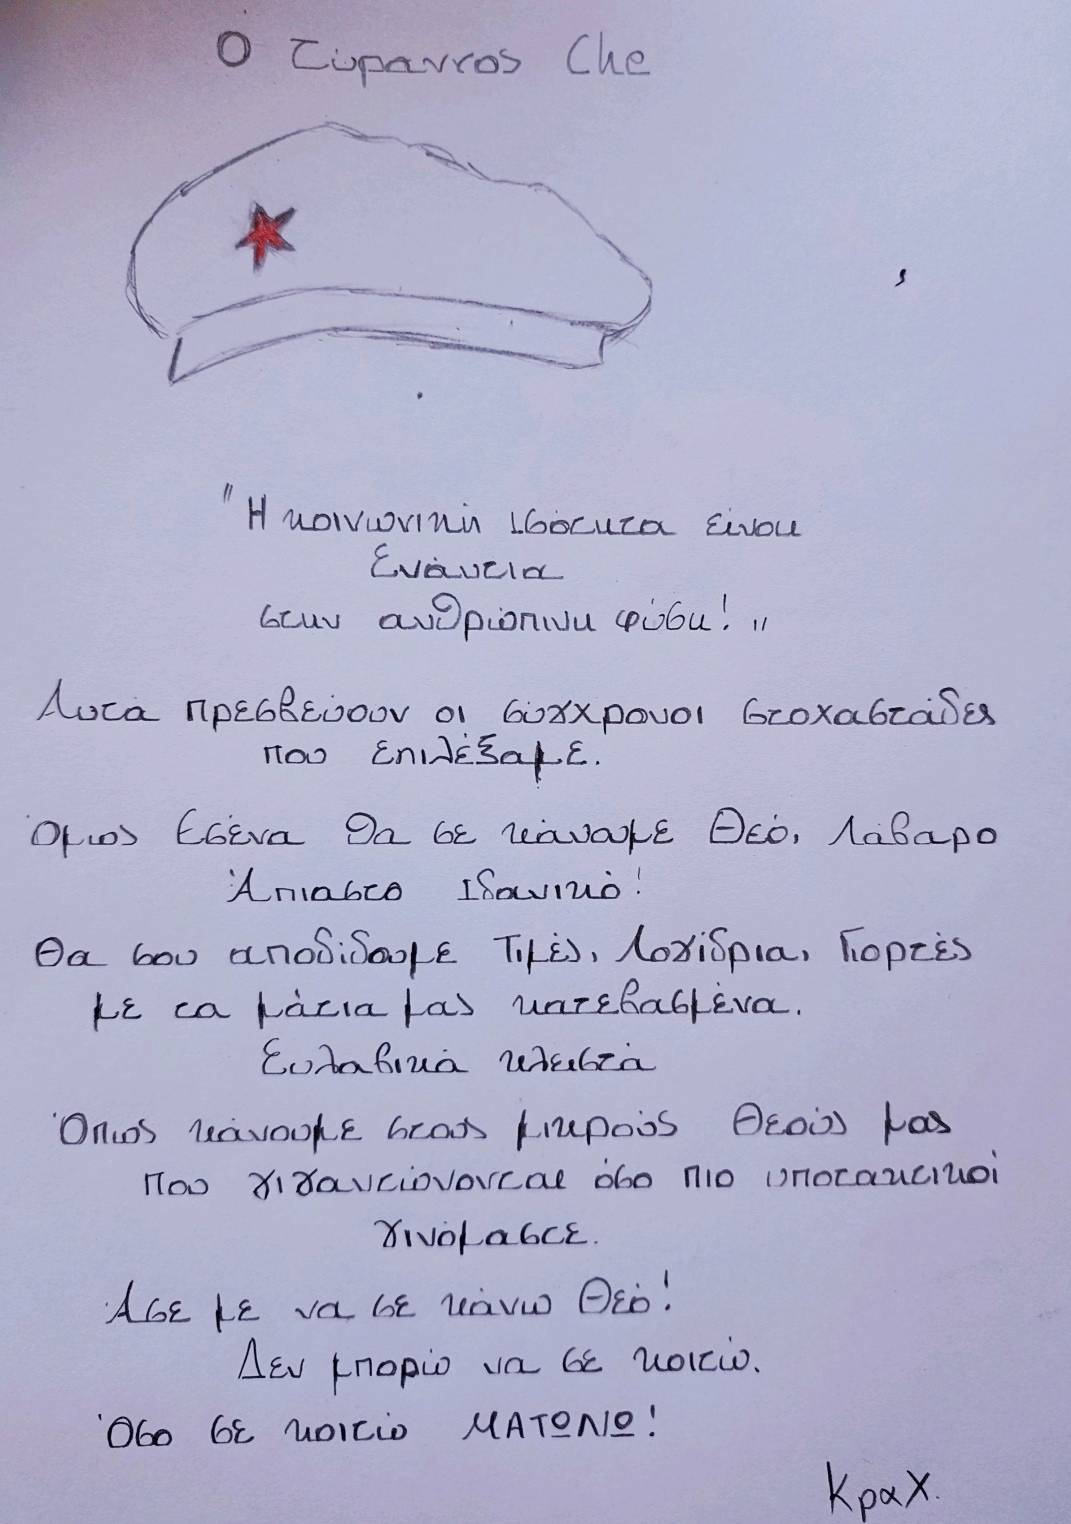 Ο Τύραννος Che
"Η κοινωνική ισότητα είναι
Ενάντεια
στην ανθρώπινη φύση!"
Αυτά πρεσβεύουν οι σύγχρονοι στοχαστάδες
που επιλέξαμε.
Όμως Εσένα θα σε κάναμε Θεό, Λάβαρο
Άπιαστο Ιδανικό!
Θα σου αποδίδουμε Τιμές, Λογίδρια, Γιορτές
με τα μάτια μας κατεβασμένα.
Ευλαβικά κλειστά
Όπως κάνουμε στους μικρούς Θεούς μας
που γιγαντώνονται όσο πιο υποτακτικοί
γινόμαστε.
Άσε με να σε κάνω Θεό!
Δεν μπορώ να σε κοιτώ.
Όσο σε κοιτώ ΜΑΤΩΝΩ!
ΚραΧ.